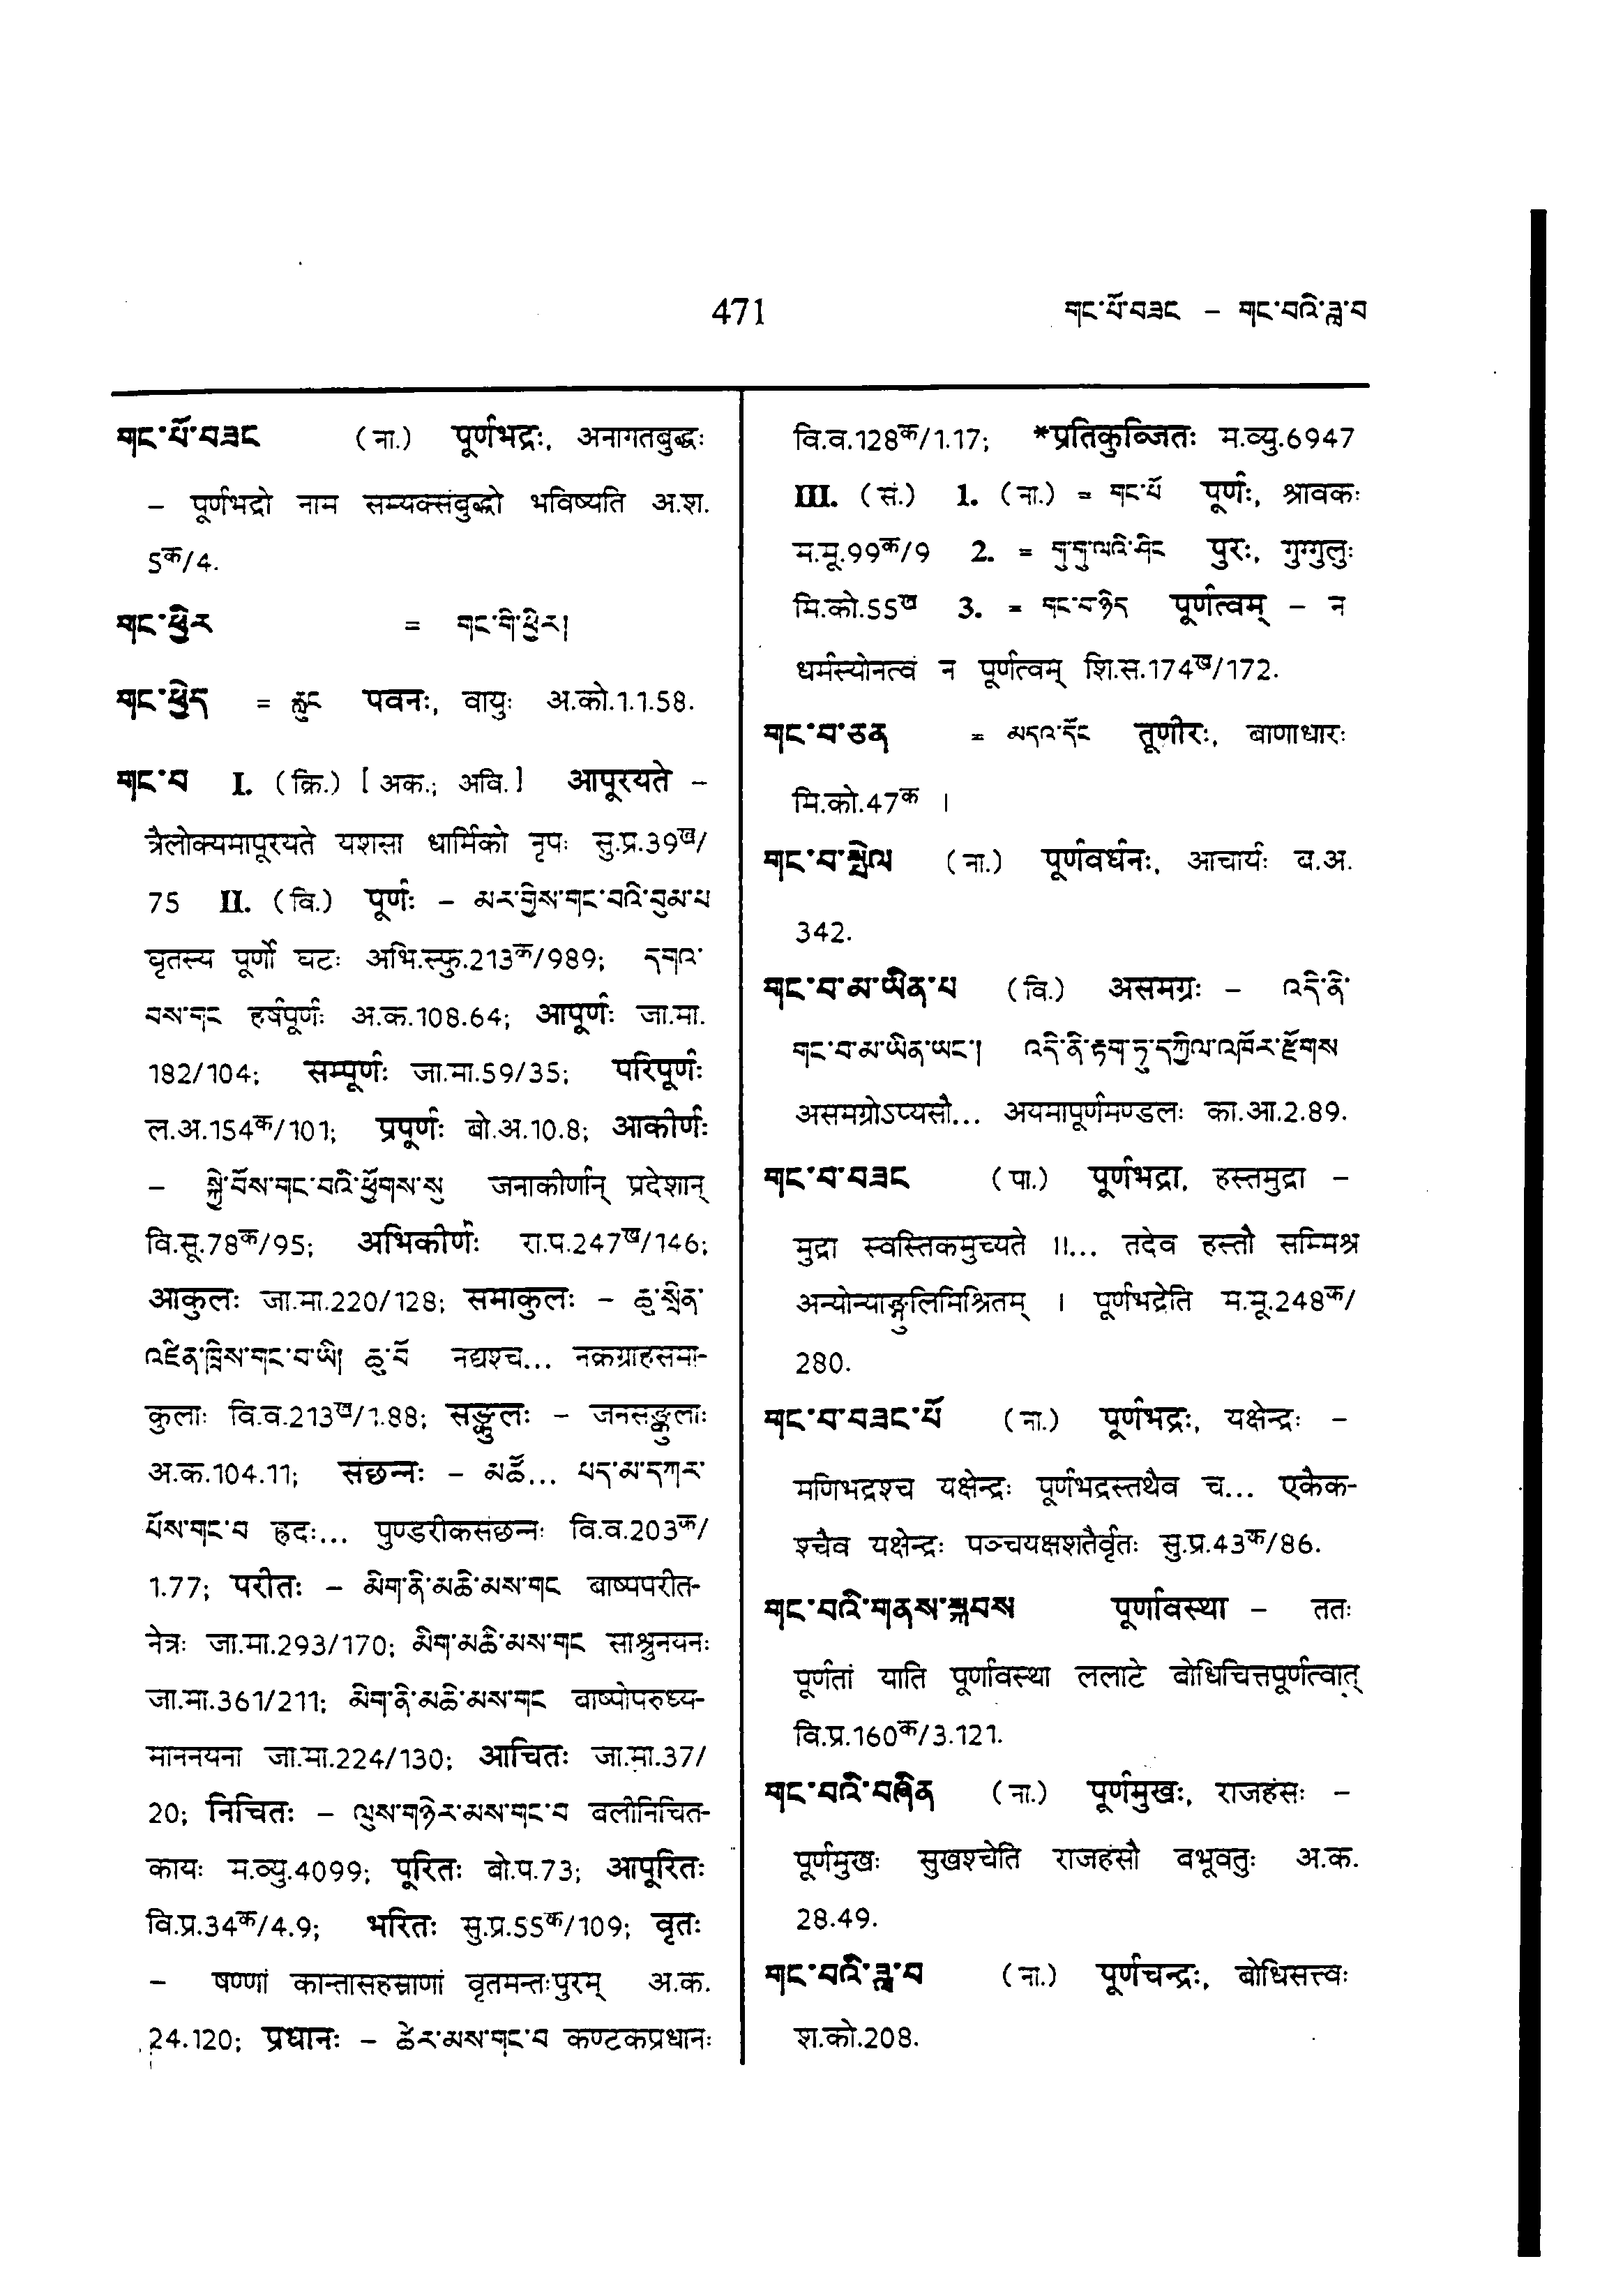 471
གང་པོ་བཟང – གང་བའི་ཟླ་བ
གང་པོ་བཟང (ना.) पूर्णभद्रः, अनागतबुद्धः
– पूर्णभद्रो नाम सम्यक्संबुद्धो भविष्यति अ.श.
5क/4.
གང་ཕྱིར = གང་གི་ཕྱིར།
གང་ཕྱེད = རླུང पवनः, वायुः अ.को.1.1.58.
གང་བ I. (क्रि.) [ अक.; अवि.] आपूरयते –
त्रैलोक्यमापूरयते यशसा धार्मिको नृपः सु.प्र.39ख/
75 II. (वि.) पूर्णः – མར་གྱིས་གང་བའི་བུམ་པ
घृतस्य पूर्णो घटः अभि.स्फु.213क/989; དགའ་
བས་གང हर्षपूर्णः अ.क.108.64; आपूर्णः जा.मा.
182/104; सम्पूर्णः जा.मा.59/35; परिपूर्णः
ल.अ.154क/101; प्रपूर्णः बो.अ.10.8; आकीर्णः
– སྐྱེ་བོས་གང་བའི་ཕྱོགས་སུ जनाकीर्णान् प्रदेशान्
वि.सू.78क/95; अभिकीर्णः रा.प.247ख/146;
आकुलः जा.मा.220/128; समाकुलः – ཆུ་སྲིན་
འཛིན་ཁྲིས་གང་བ་ཡི། ཆུ་བོ नद्यश्च... नक्रग्राहसमा-
कुलाः वि.व.213ख/1.88; सङ्कुलः – जनसङ्कुलाः
अ.क.104.11; संछन्नः – མཚོ... པད་མ་དཀར་
པོས་གང་བ ह्रदः... पुण्डरीकसंछन्नः वि.व.203क/
1.77; परीतः – མིག་ནི་མཆི་མས་གང बाष्पपरीत-
नेत्रः जा.मा.293/170; མིག་མཆི་མས་གང साश्रुनयनः
जा.मा.361/211; མིག་ནི་མཆི་མས་གང बाष्पोपरुध्य-
माननयना जा.मा.224/130; आचितः जा.मा.37/
20; निचितः – ལུས་གཉེར་མས་གང་བ बलीनिचित-
कायः म.व्यु.4099; पूरितः बो.प.73; आपूरितः
वि.प्र.34क/4.9; भरितः सु.प्र.55क/109; वृतः
– षण्णां कान्तासहस्राणां वृतमन्तःपुरम् अ.क.
24.120; प्रधानः – ཚེར་མས་གང་བ कण्टकप्रधानः
वि.व.128क/1.17; *प्रतिकुब्जितः म.व्यु.6947
III. (सं.) 1. (ना.) = གང་པོ पूर्णः, श्रावकः
म.मू.99क/9 2. = གུ་གུ་ལའི་ཤིང पुरः, गुग्गुलुः
मि.को.55ख 3. = གང་བ་ཉིད पूर्णत्वम् – न
धर्मस्योनत्वं न पूर्णत्वम् शि.स.174ख/172.
གང་བ་ཅན = མདའ་དོང तूणीरः, बाणाधारः
मि.को.47क ।
གང་བ་སྤེལ (ना.) पूर्णवर्धनः, आचार्यः ब.अ.
342.
གང་བ་མ་ཡིན་པ (वि.) असमग्रः – འདི་ནི་
གང་བ་མ་ཡིན་ཡང་། འདི་ནི་རྟག་ཏུ་དཀྱིལ་འཁོར་རྫོགས
असमग्रोऽप्यसौ... अयमापूर्णमण्डलः का.आ.2.89.
གང་བ་བཟང (पा.) पूर्णभद्रा, हस्तमुद्रा –
मुद्रा स्वस्तिकमुच्यते ॥... तदेव हस्तौ सम्मिश्र
अन्योन्याङ्गुलिमिश्रितम् । पूर्णभद्रेति म.मू.248क/
280.
གང་བ་བཟང་པོ (ना.) पूर्णभद्रः, यक्षेन्द्रः –
मणिभद्रश्च यक्षेन्द्रः पूर्णभद्रस्तथैव च... एकैक-
श्चैव यक्षेन्द्रः पञ्चयक्षशतैर्वृतः सु.प्र.43क/86.
གང་བའི་གནས་སྐབས पूर्णावस्था – ततः
पूर्णतां याति पूर्णावस्था ललाटे बोधिचित्तपूर्णत्वात्
वि.प्र.160क/3.121.
གང་བའི་བཞིན (ना.) पूर्णमुखः, राजहंसः –
पूर्णमुखः सुखश्चेति राजहंसौ बभूवतुः अ.क.
28.49.
གང་བའི་ཟླ་བ (ना.) पूर्णचन्द्रः, बोधिसत्त्वः
श.को.208.